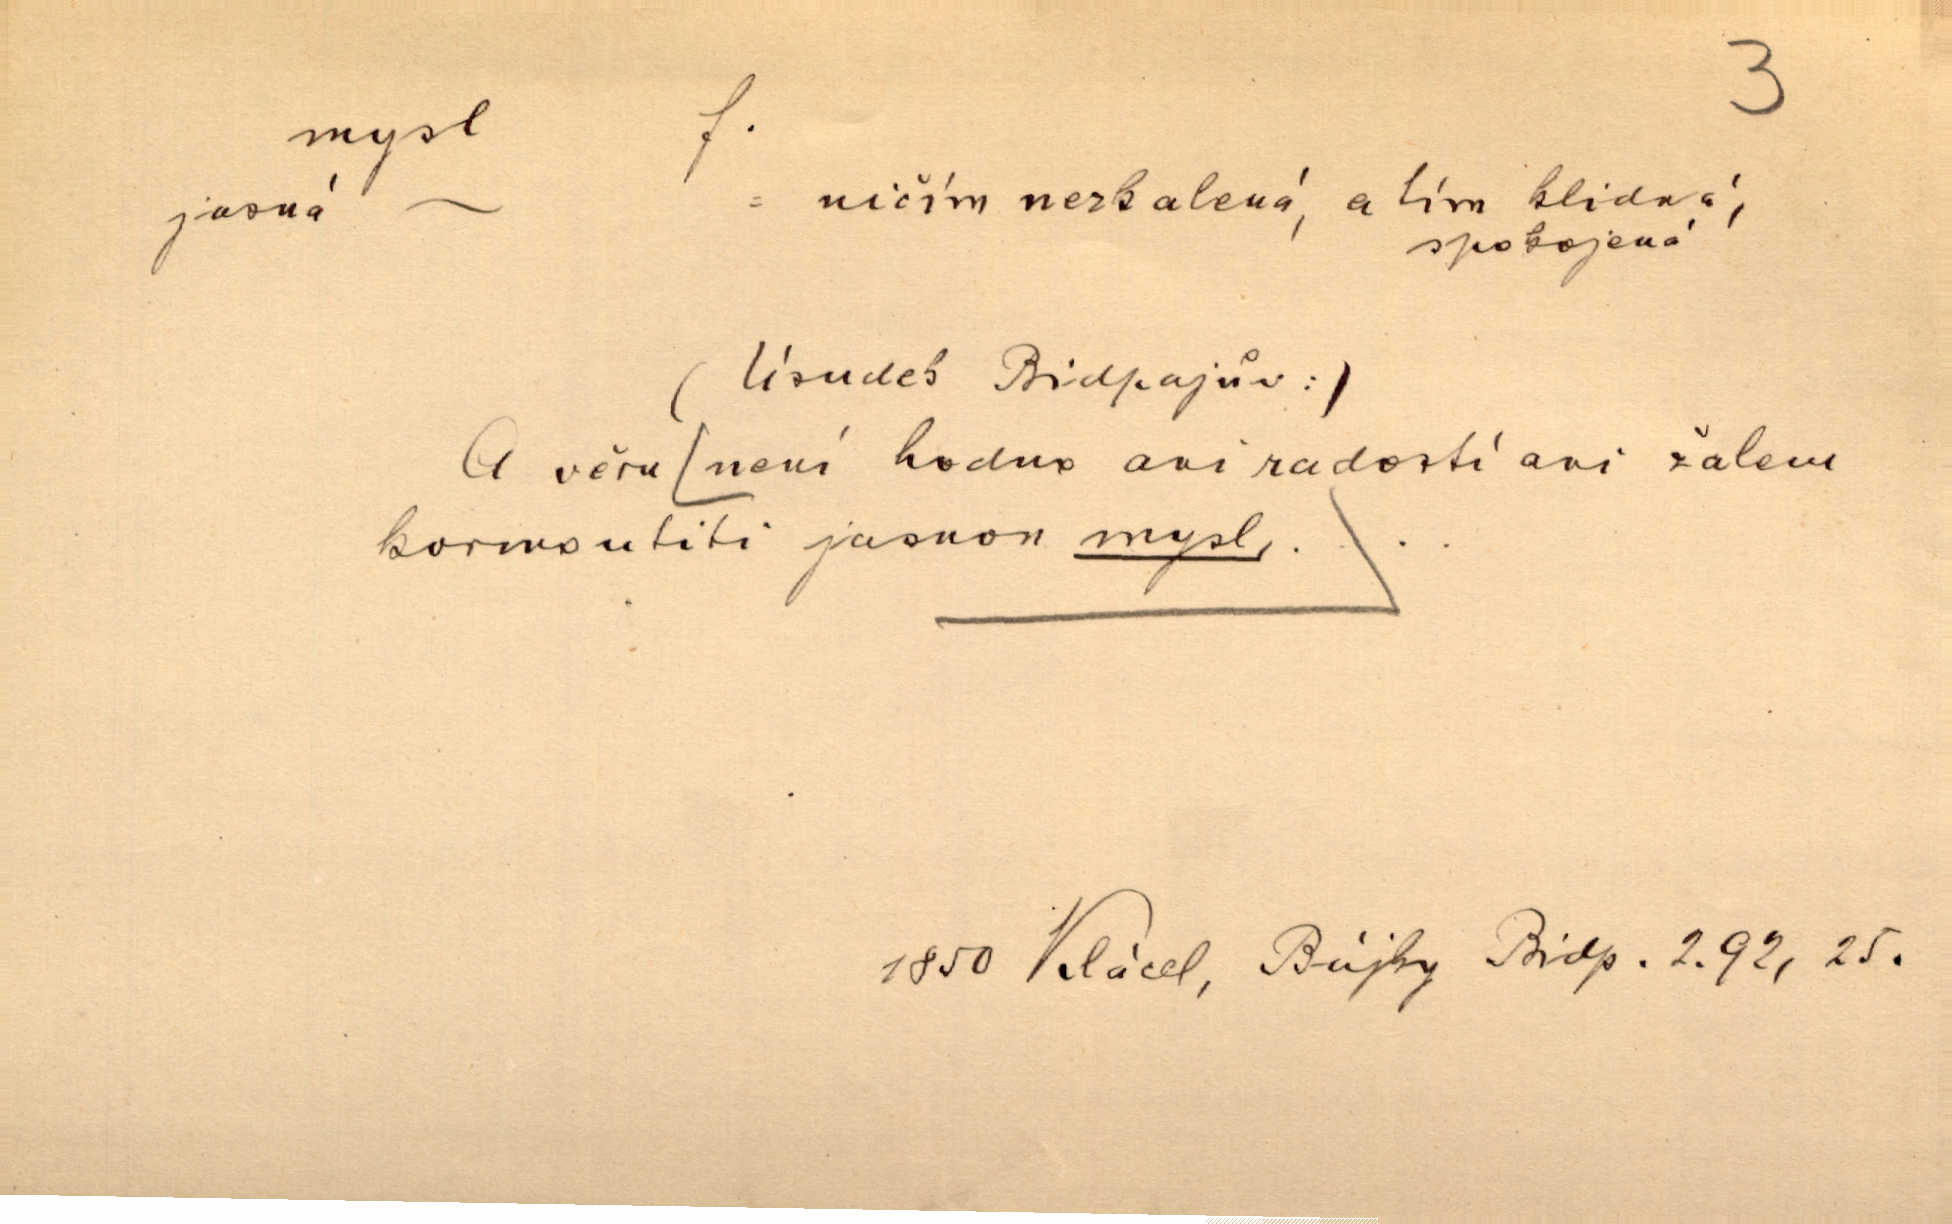 3
mysl f.
jasná ~ = ničím nezkalená, a tím klidná,
spokojená
(Úsudek Bidpajův:)
A věru [není hodno ani radostí ani žalem
kormoutiti jasnou mysl,. . ] . .
1850 Klácel, Bájky Bidp. 2.92, 25.